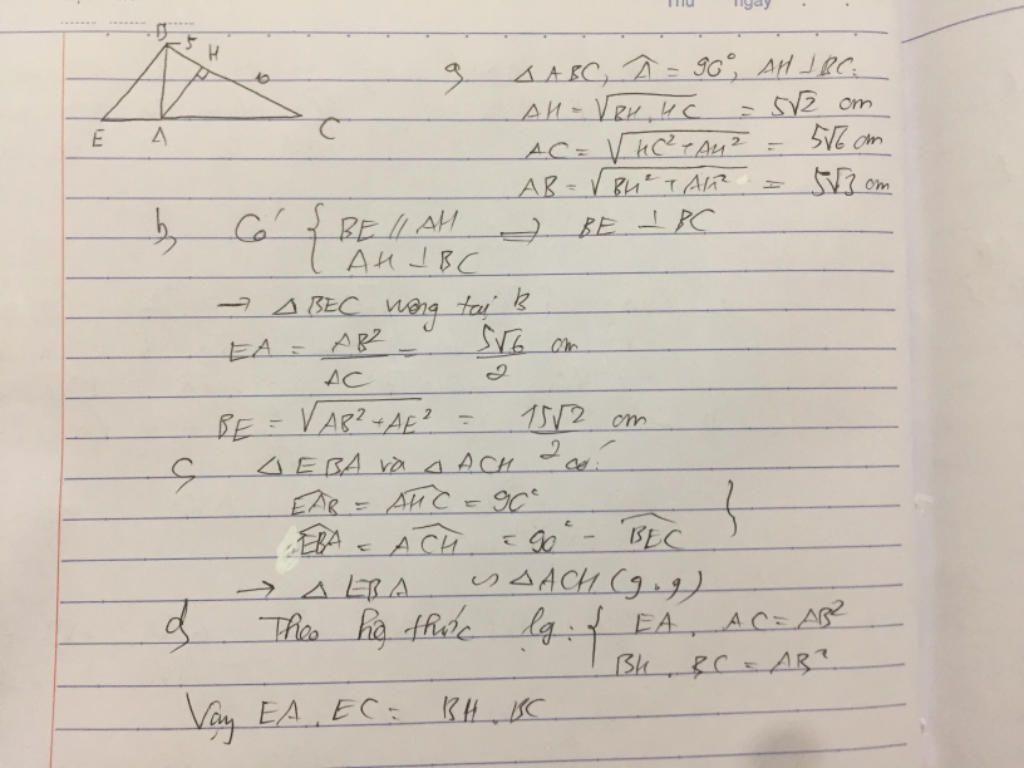 Thứ ngày
B 5 H 10
E A C
a, △ABC, Â = 90°, AH ⊥ BC:
AH = √(BH.HC) = 5√2 cm
AC = √(HC² + AH²) = 5√6 cm
AB = √(BH² + AH²) = 5√3 cm
b, Có { BE // AH ⇒ BE ⊥ BC
AH ⊥ BC
→ △BEC vuông tại B
EA = AB²/AC = 5√6/2 cm
BE = √(AB² + AE²) = 15√2/2 cm
c, △EBA và △ACH có:
EAB = AHC = 90° }
EBA = ACH = 90° - BEC
→ △EBA ∽ △ACH (g.g)
d, Theo hệ thức lg: { EA. AC = AB²
BH. BC = AB²
Vậy EA. EC = BH. BC